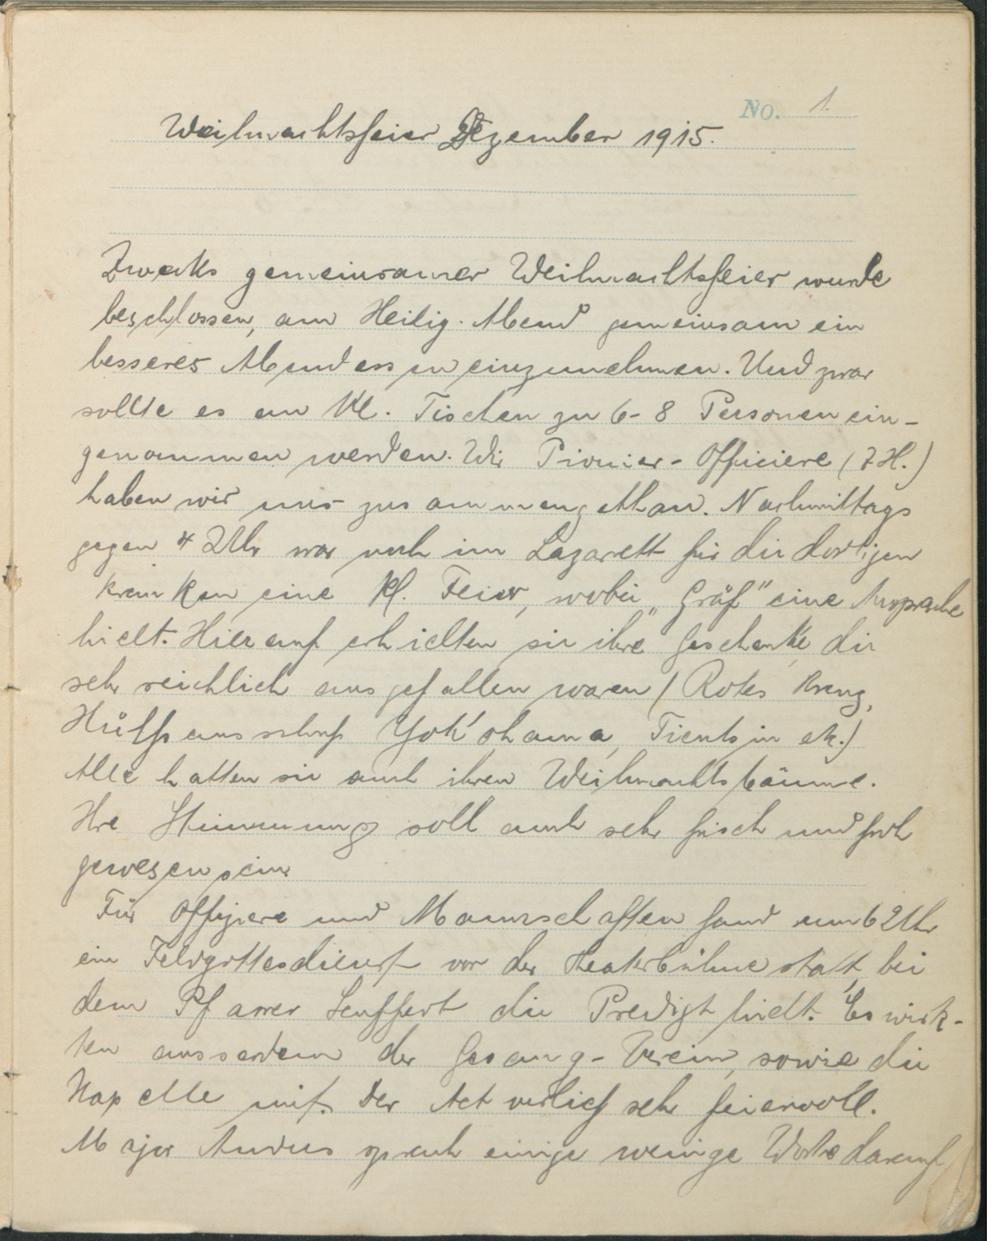 No. 1.
Weihnachtsfeier Dezember 1915.
Zwecks gemeinsamer Weihnachtsfeier wurde
beschlossen, am Heilig. Abend gemeinsam ein
besseres Abendessen einzunehmen. Und zwar
sollte es an kl. Tischen zu 6-8 Personen ein-
genommen werden. Wir Pionier-Officiere (7 H.)
haben wir uns zusammengethan. Nachmittags
gegen 4 Uhr war noch im Lazarett für die dortigen
Kranken eine kl. Feier, wobei "Gräf" eine Ansprache
hielt. Hierauf erhielten sie ihre Geschenke, die
sehr reichlich ausgefallen waren (Rotes Kreuz,
Hülfsausschuß Yokohama, Tientsin etc.)
Alle hatten sie auch ihren Weihnachtsbäume.
Ihre Stimmung soll auch sehr frisch und froh
gewesen sein.
Für Offiziere und Mannschaften fand um 6 Uhr
ein Feldgottesdienst vor der Theaterbühne statt, bei
dem Pfarrer Seuffert die Predigt hielt. Es wirk-
ten ausserdem der Gesang-Verein, sowie die
Kapelle mit. Der Act verlief sehr feiervoll.
Major Anders sprach einige wenige Worte darauf